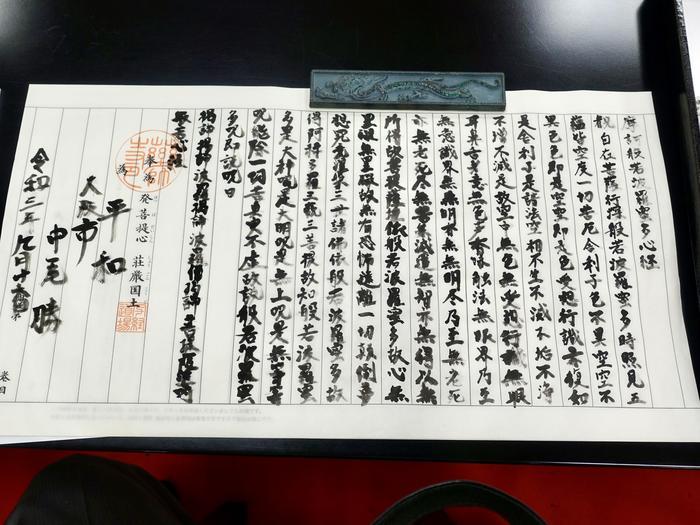 摩訶般若波羅蜜多心経
観自在菩薩行深般若波羅蜜多時照見五
蘊皆空度一切苦厄舎利子色不異空空不
異色色即是空空即是色受想行識亦復如
是舎利子是諸法空相不生不滅不垢不浄
不増不減是故空中無色無受想行識無眼
耳鼻舌身意無色声香味触法無眼界乃至
無意識界無無明亦無無明尽乃至無老死
亦無老死尽無苦集滅道無智亦無得以無
所得故菩提薩埵依般若波羅蜜多故心無
罣礙無罣礙故無有恐怖遠離一切顛倒夢
想究竟涅槃三世諸佛依般若波羅蜜多故
得阿耨多羅三藐三菩提故知般若波羅蜜
多是大神呪是大明呪是無上呪是無等等
呪能除一切苦真実不虚故説般若波羅蜜
多呪即説呪曰
羯諦羯諦波羅羯諦波羅僧羯諦菩提薩婆訶
般若心経
奉為 発菩提心 荘厳国土
為 平和
大阪市
中尾勝
令和三年九月十
巻目